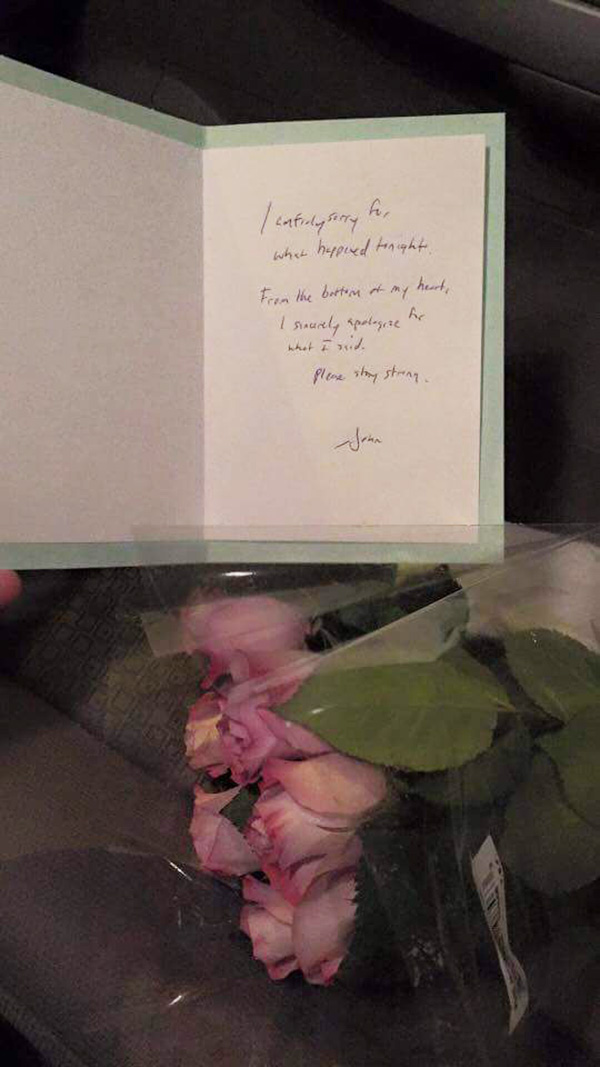 I entirely sorry for
what happened tonight.
From the bottom of my heart,
I sincerely apologize for
what I said.
Please stay strong.
~John